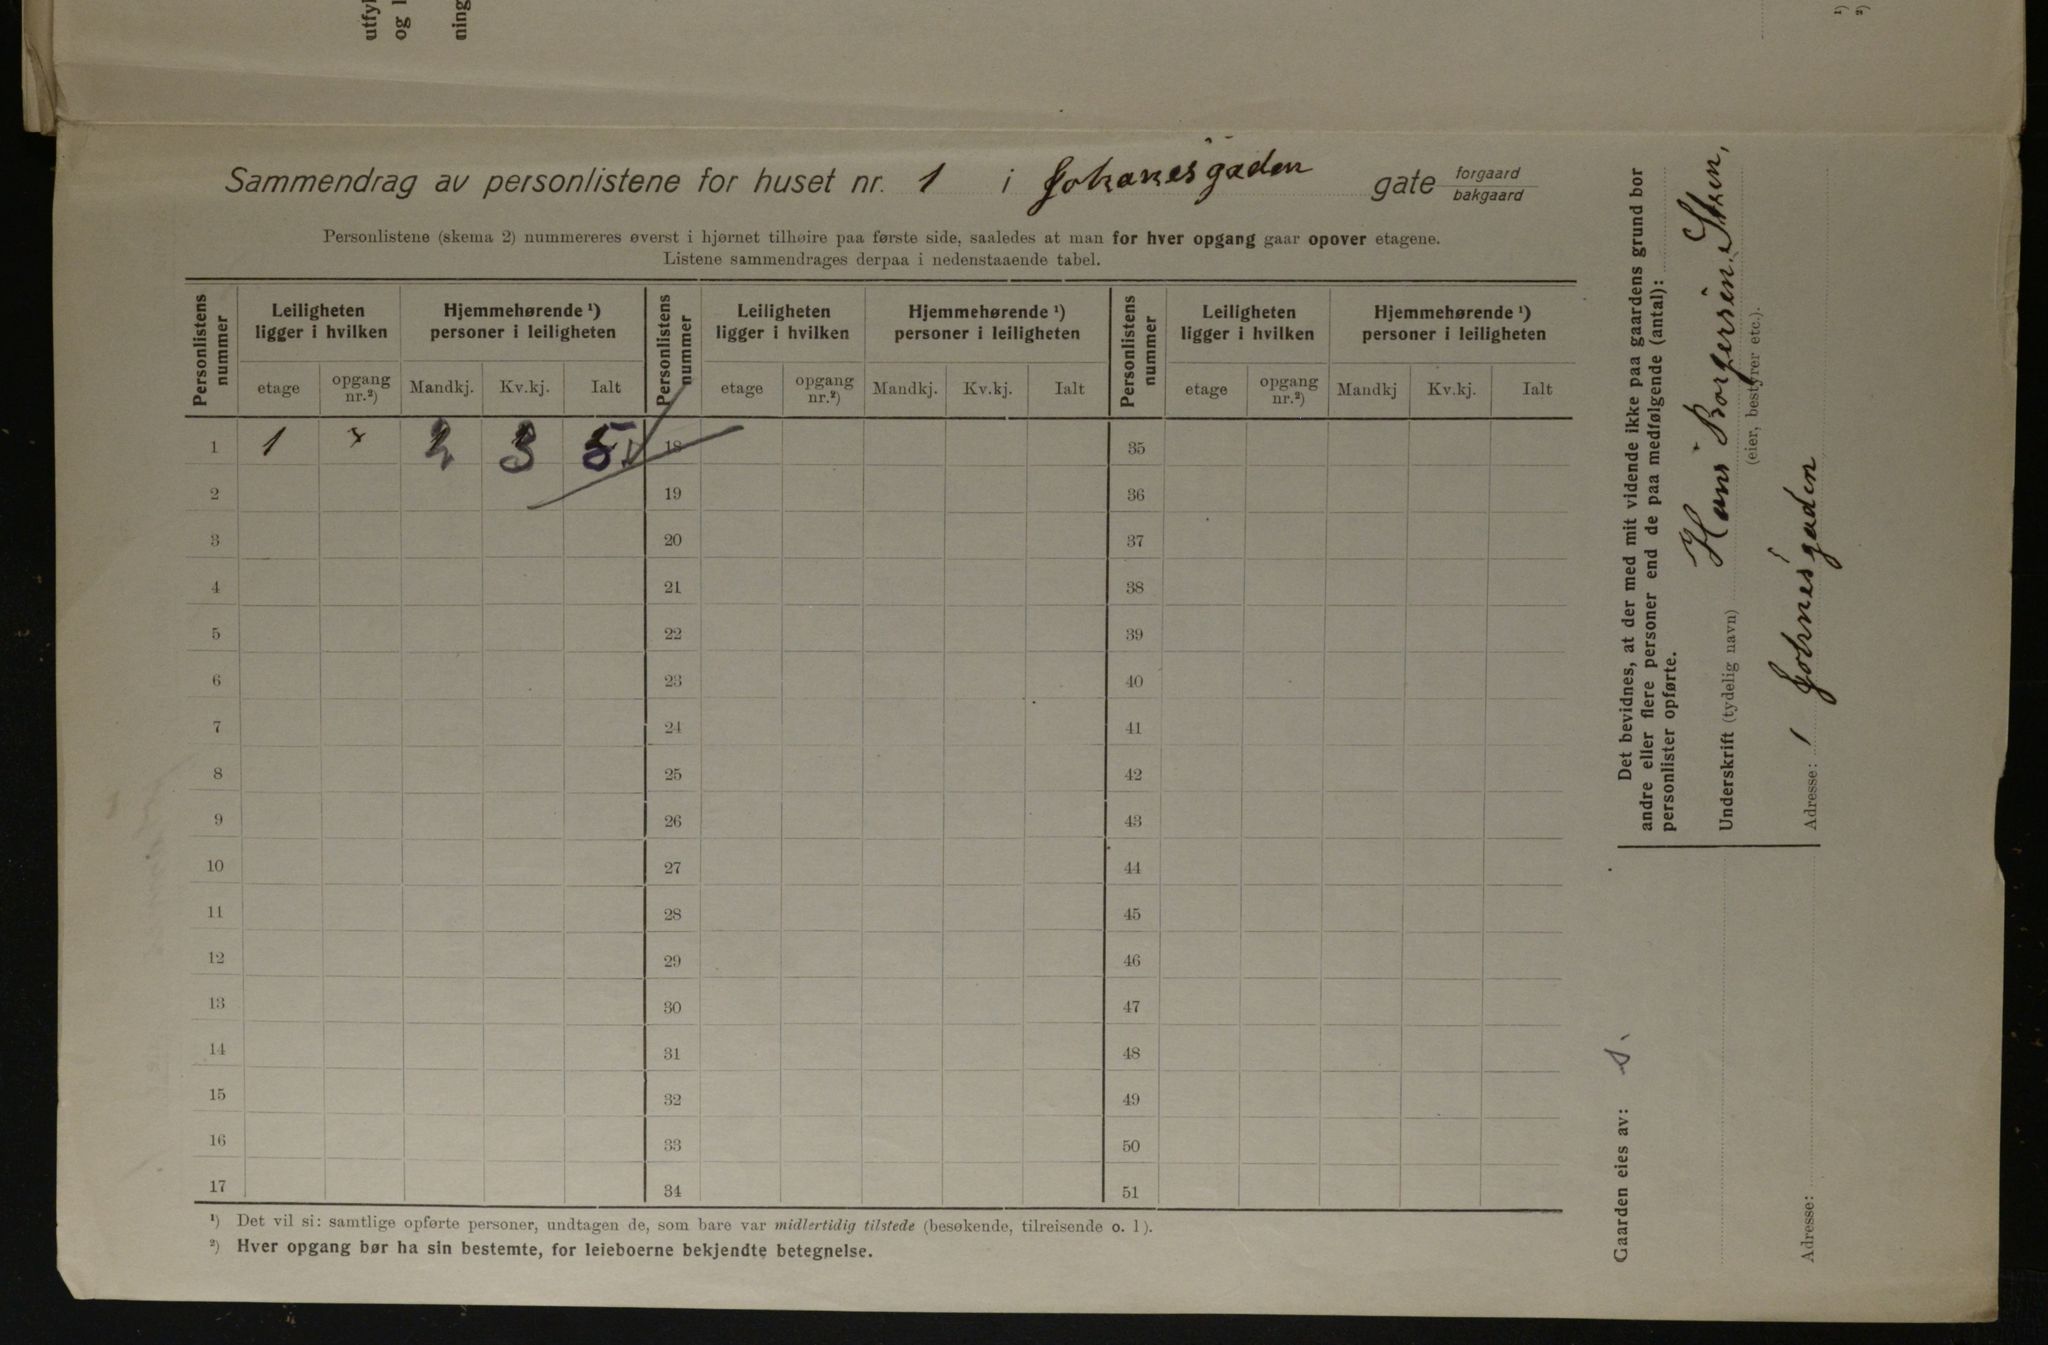 utfyl
og l
ning
1)
2)
Sammendrag av personlistene for huset nr. 1 i Johanesgaden gate forgaard bakgaard
Personlistene (skema 2) nummereres øverst i hjørnet tilhøire paa første side, saaledes at man for hver opgang gaar opover etagene.
Listene sammendrages derpaa i nedenstaaende tabel.
Personlistens nummer | Leiligheten ligger i hvilken | Hjemmehørende ¹) personer i leiligheten | Personlistens nummer | Leiligheten ligger i hvilken | Hjemmehørende ¹) personer i leiligheten | Personlistens nummer | Leiligheten ligger i hvilken | Hjemmehørende ¹) personer i leiligheten
etage | opgang nr.²) | Mandkj. | Kv.kj. | Ialt | etage | opgang nr.²) | Mandkj. | Kv.kj. | Ialt | etage | opgang nr.²) | Mandkj | Kv.kj. | Ialt
1 | 1 | × | 2 | 3 | 5 | 18 | 35
2 | 19 | 36
3 | 20 | 37
4 | 21 | 38
5 | 22 | 39
6 | 23 | 40
7 | 24 | 41
8 | 25 | 42
9 | 26 | 43
10 | 27 | 44
11 | 28 | 45
12 | 29 | 46
13 | 30 | 47
14 | 31 | 48
15 | 32 | 49
16 | 33 | 50
17 | 34 | 51
¹) Det vil si: samtlige opførte personer, undtagen de, som bare var midlertidig tilstede (besøkende, tilreisende o. l).
²) Hver opgang bør ha sin bestemte, for leieboerne bekjendte betegnelse.
Det bevidnes, at der med mit vidende ikke paa gaardens grund bor
andre eller flere personer end de paa medfølgende (antal):
personlister opførte.
Underskrift (tydelig navn) Hans Borgersen
(eier, bestyrer etc.).
Adresse: 1 Johnes'gaden
Gaarden eies av: s.
Adresse: